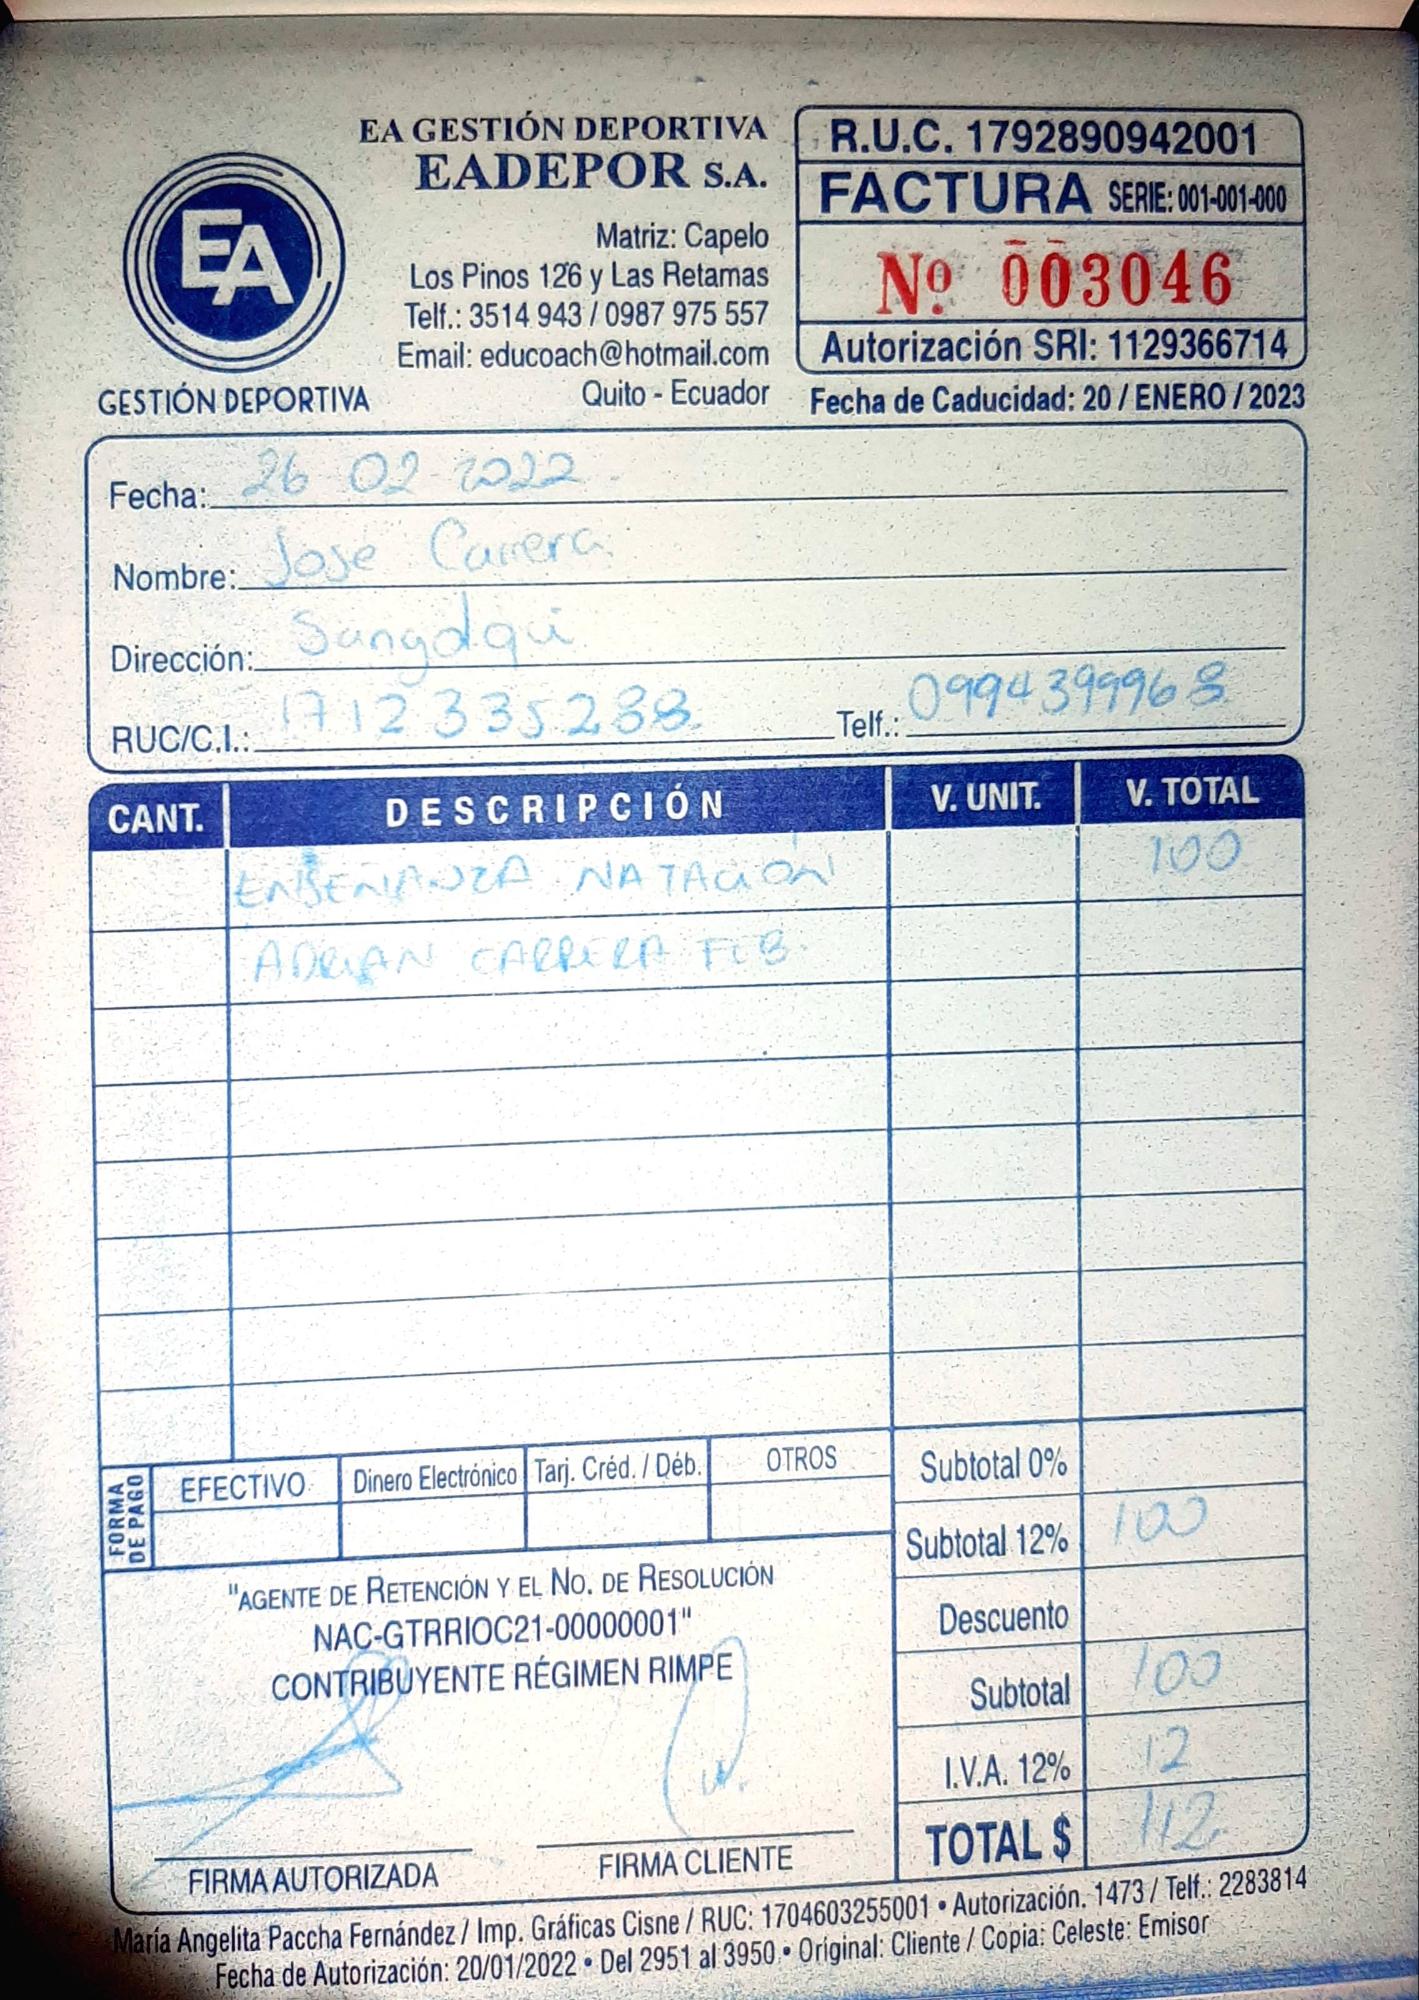 EA GESTIÓN DEPORTIVA
EADEPOR S.A.
EA
GESTIÓN DEPORTIVA
Matriz: Capelo
Los Pinos 126 y Las Retamas
Telf.: 3514 943 / 0987 975 557
Email: educoach@hotmail.com
Quito - Ecuador
R.U.C. 1792890942001
FACTURA SERIE: 001-001-000
Nº 003046
Autorización SRI: 1129366714
Fecha de Caducidad: 20 / ENERO / 2023
Fecha: 26 02 2022
Nombre: Jose Carrera
Dirección: Sangolqui
RUC/C.I.: 1712335288 Telf.: 0994399968
CANT. DESCRIPCIÓN V. UNIT. V. TOTAL
ENSEÑANZA NATACIÓN 100
ADRIAN CARRERA FCB.
FORMA DE PAGO
EFECTIVO Dinero Electrónico Tarj. Créd. / Déb. OTROS
Subtotal 0%
Subtotal 12% 100
Descuento
Subtotal 100
I.V.A. 12% 12
TOTAL $ 112
"AGENTE DE RETENCIÓN Y EL NO. DE RESOLUCIÓN
NAC-GTRRIOC21-00000001"
CONTRIBUYENTE RÉGIMEN RIMPE
FIRMA AUTORIZADA FIRMA CLIENTE
María Angelita Paccha Fernández / Imp. Gráficas Cisne / RUC: 1704603255001 • Autorización. 1473 / Telf.: 2283814
Fecha de Autorización: 20/01/2022 • Del 2951 al 3950 • Original: Cliente / Copia: Celeste: Emisor